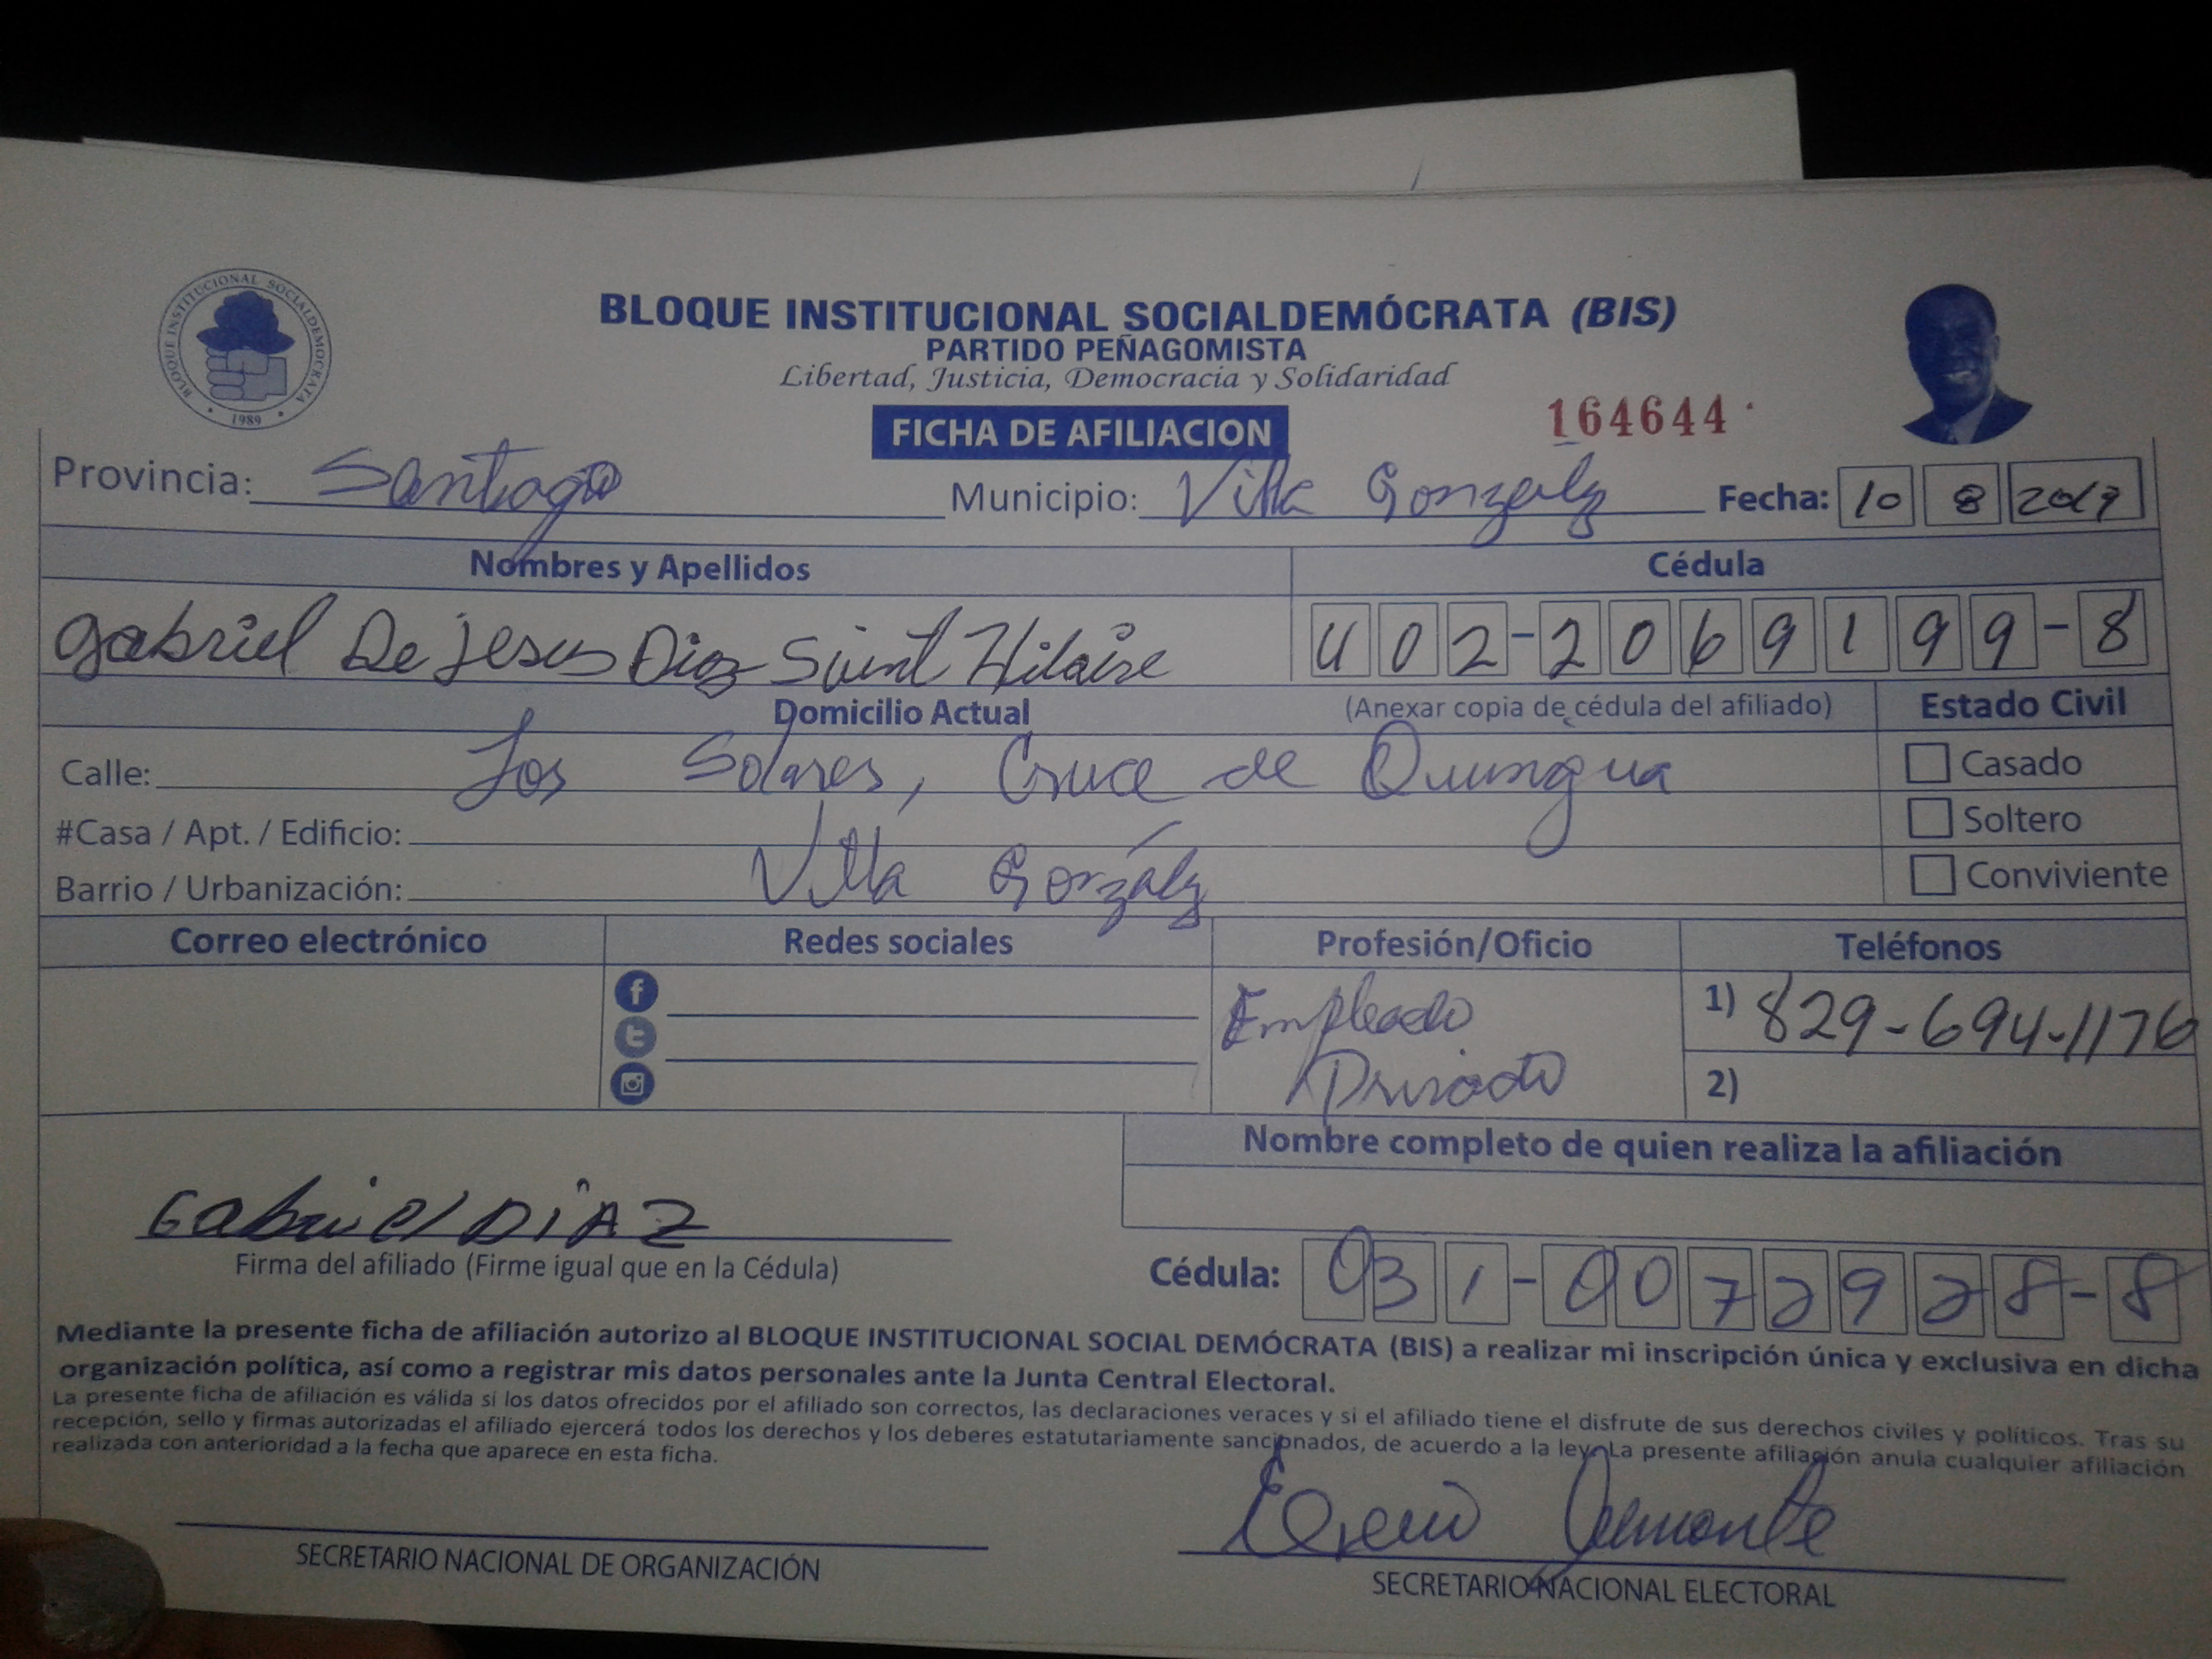 BLOQUE INSTITUCIONAL SOCIALDEMOCRATA
1989
BLOQUE INSTITUCIONAL SOCIALDEMÓCRATA (BIS)
PARTIDO PEÑAGOMISTA
Libertad, Justicia, Democracia y Solidaridad
FICHA DE AFILIACION
164644
Provincia: Santiago Municipio: Villa González Fecha: 10 8 2017
Nombres y Apellidos Cédula
Gabriel De Jesus Diaz Saint Hilaire 402-2069199-8
Domicilio Actual (Anexar copia de cédula del afiliado) Estado Civil
Calle: Los Solares, Cruce de Quinigua Casado
#Casa / Apt. / Edificio: Soltero
Barrio / Urbanización: Villa González Conviviente
Correo electrónico Redes sociales Profesión/Oficio Teléfonos
Empleado 1) 829-694-1176
Privado 2)
Nombre completo de quien realiza la afiliación
Gabriel DíAZ
Firma del afiliado (Firme igual que en la Cédula) Cédula: 031-0072928-8
Mediante la presente ficha de afiliación autorizo al BLOQUE INSTITUCIONAL SOCIAL DEMÓCRATA (BIS) a realizar mi inscripción única y exclusiva en dicha
organización política, así como a registrar mis datos personales ante la Junta Central Electoral.
La presente ficha de afiliación es válida si los datos ofrecidos por el afiliado son correctos, las declaraciones veraces y si el afiliado tiene el disfrute de sus derechos civiles y políticos. Tras su
recepción, sello y firmas autorizadas el afiliado ejercerá todos los derechos y los deberes estatutariamente sancionados, de acuerdo a la ley. La presente afiliación anula cualquier afiliación
realizada con anterioridad a la fecha que aparece en esta ficha.
SECRETARIO NACIONAL DE ORGANIZACIÓN SECRETARIO NACIONAL ELECTORAL